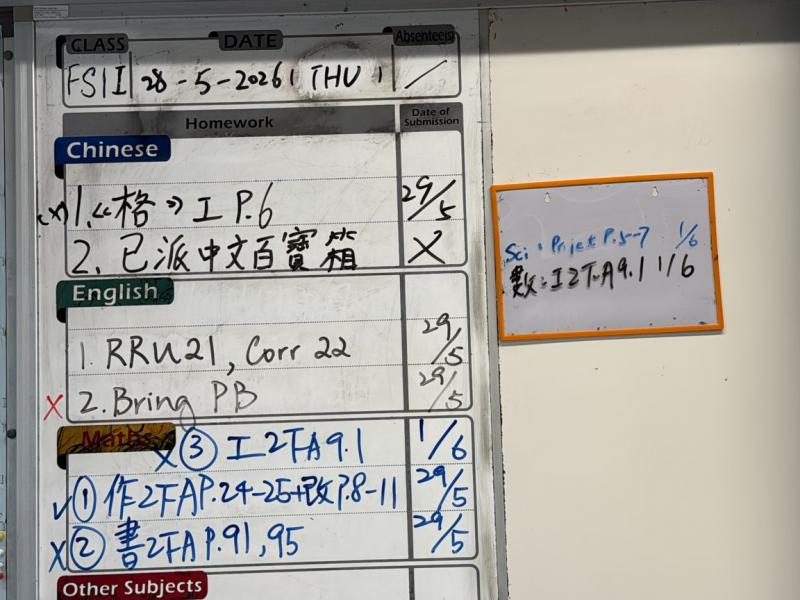 CLASS DATE Absentee(s)
FSII 28-5-2026 THU /
Homework Date of Submission
Chinese
(x) 1.《格》工 P.6 29/5
2. 已派中文百寶箱 X
English
1. RRU21, Corr 22 29/5
X 2. Bring PB 29/5
Maths
X ③ 工2下A9.1 1/6
✓ ① 作2下AP.24-25+改P.8-11 29/5
X ② 書2下AP.91,95 29/5
Other Subjects
Sci: Projet P.5-7 1/6
數:工2下A9.1 1/6